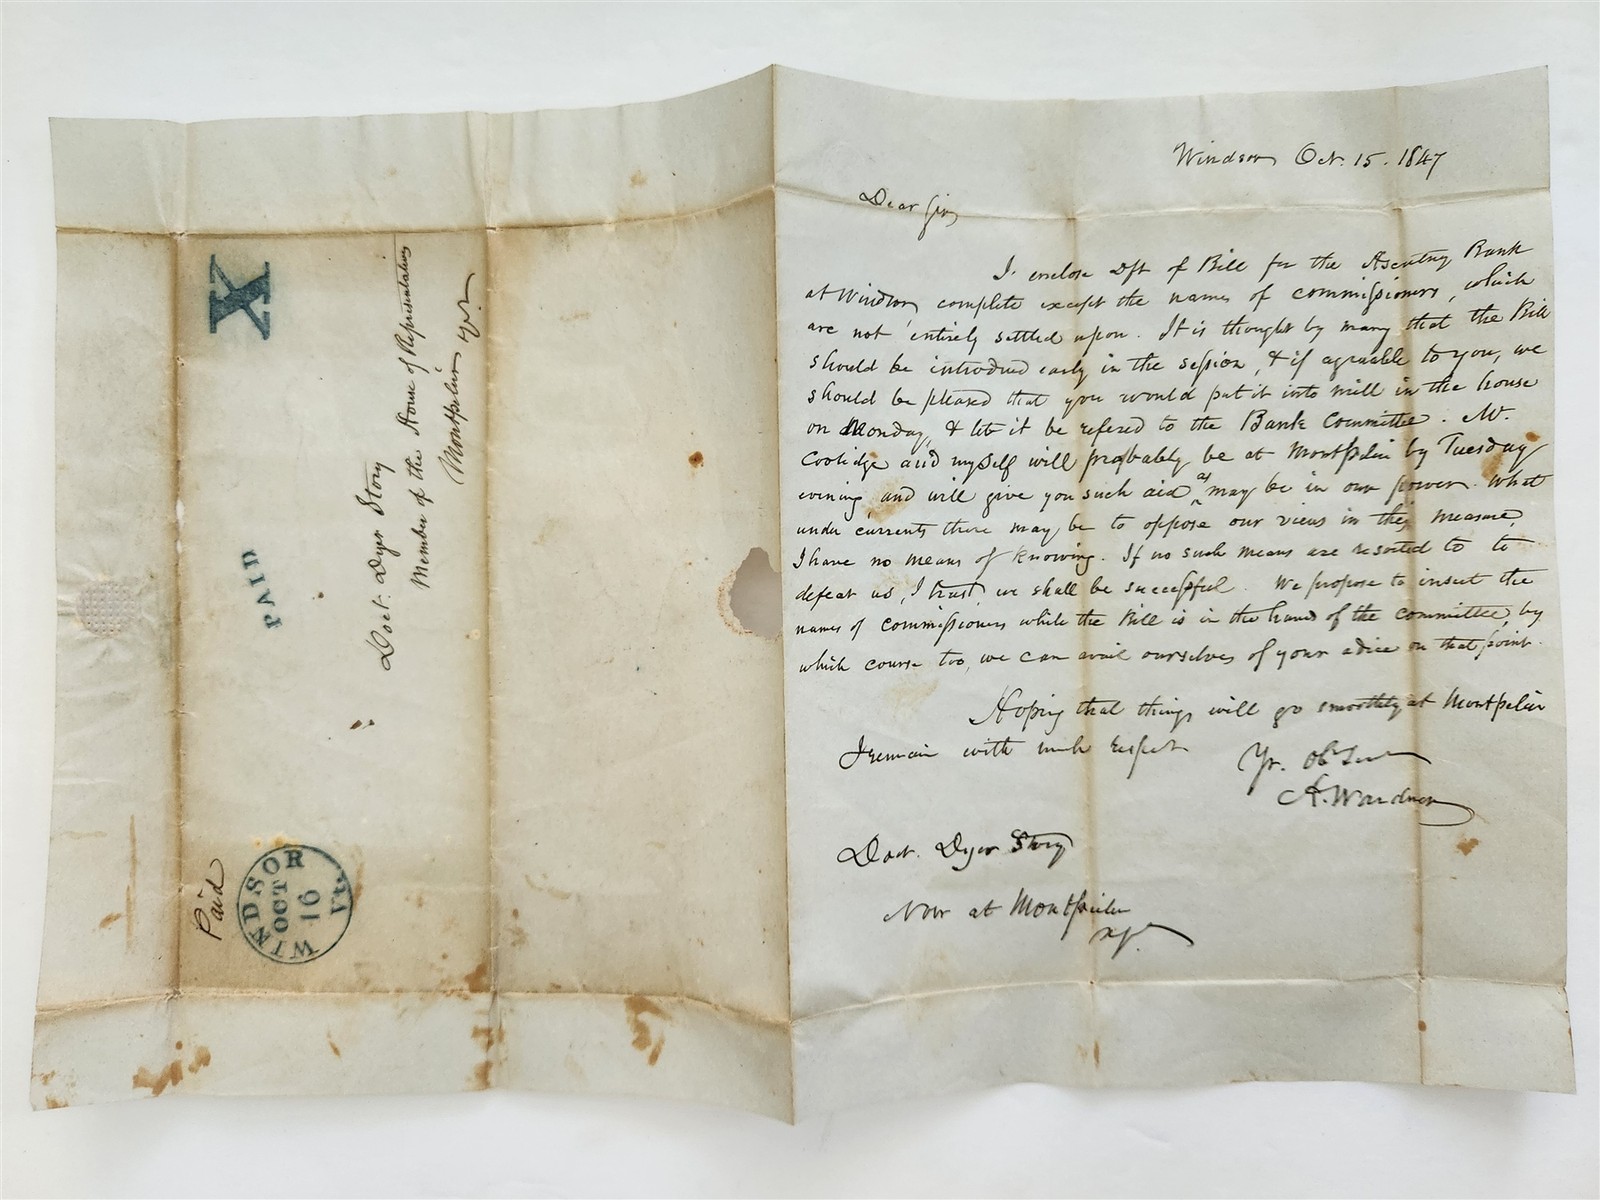 X
PAID
Doct. Dyer Story
Member of the House of Representatives
Montpelier
Paid
WINDSOR Vt.
OCT
16
Windsor Oct. 15. 1847
Dear Sir,
I enclose Dft of Bill for the Ascutney Bank
at Windsor, complete except the names of commissioners, which
are not entirely settled upon. It is thought by many that the Bill
should be introdued early in the session, & if agreeable to you, we
should be pleased that you would put it into mill in the house
on Monday, & let it be refered to the Bank Committee. Mr.
Coolidge and myself will probably be at Montpelier by Tuesday
evening and will give you such aid as may be in our power. What
under currents there may be to oppose our views in this measure,
I have no means of knowing. If no such means are resorted to to
defeat us, I trust we shall be successful. We propose to insert the
names of commissioners while the Bill is in the hands of the committee, by
which course too, we can avail ourselves of your advice on that point.
Hoping that things will go smoothly at Montpelier
I remain with much respect
Yr. Obt Servt
A. Wardner
Doct. Dyer Story
Now at Montpelier